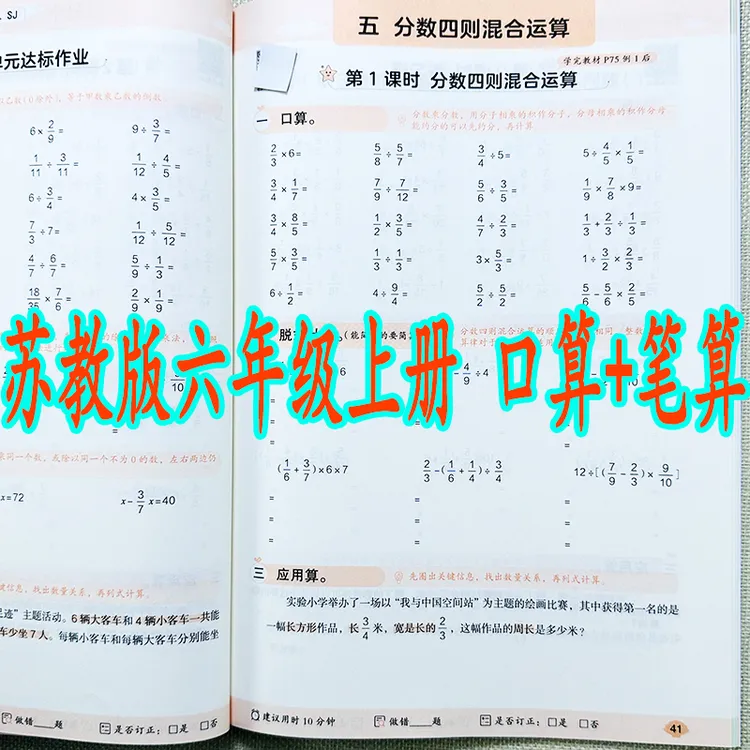 SJ
单元达标作业
6×2/9=
9÷3/7=
1/11÷3/11=
1/12÷4/5=
6÷3/4=
4×3/5=
7/3÷7=
1/12÷5/12=
4/7÷6/7=
5/9÷1/3=
18/35×7/6=
2/9×1/9=
x=72
x-3/7x=40
”主题活动。6辆大客车和4辆小客车一共能
车少坐7人。每辆小客车和每辆大客车分别能坐
做错____题
是否订正:□是 □否
五 分数四则混合运算
学完教材P75例1后
第1课时 分数四则混合运算
一 口算。
分数乘分数,用分子相乘的积作分子,分母相乘的积作分母
能约分的可以先约分,再计算
2/3×6=
5/8÷5/7=
3/4÷5=
5÷4/5×1/5=
3/4×1/7=
7/9÷7/12=
5/6÷3/5=
1/9×7/8×9=
3/4×8/5=
1/2×3/5=
4/7÷2/3=
1/3+2/3÷1/3=
5/7×3/5=
1/3÷1/3=
3×5/3=
1÷3/2×2/3=
6÷1/2=
4÷9/4=
5/2÷5/2=
5/6-5/6×2/5=
苏教版六年级上册 口算+笔算
4/9÷4
(1/6+3/7)×6×7
2/3-(1/6+1/4)÷3/4
12÷[(7/9-2/3)×9/10]
=
=
=
=
=
=
=
=
=
三 应用算。
先圈出关键信息,找出数量关系,再列式计算。
实验小学举办了一场以“我与中国空间站”为主题的绘画比赛,其中获得第一名的是
一幅长方形作品,长3/4米,宽是长的2/3,这幅作品的周长是多少米?
建议用时10分钟
做错____题
是否订正:□是 □否
41